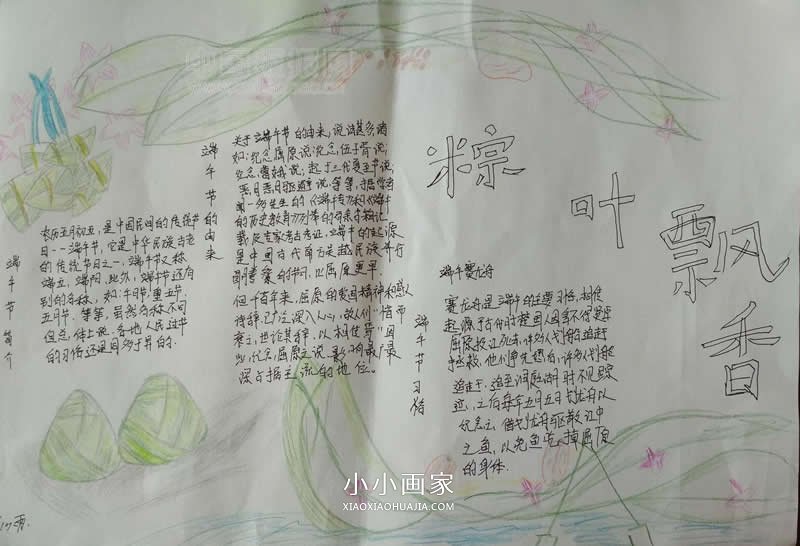 粽叶飘香
端午节简介
农历五月初五,是中国民间的传统节
日——端午节,它是中华民族古老
的传统节日之一。端午节又称
端五,端阳。此外,端午节还有
别的名称,如:午日节、重五节、
五月节、等等,虽然名称不同
但总体上说,各地人民过节
的习俗还是同多于异的。
端午节的由来
关于端午节的由来,说法甚多,诸
如:纪念屈原说;纪念伍子胥说;
纪念曹娥说;起于三代夏至节说;
恶月恶日驱避说,等等,据学者
闻一多先生的《端午考》和《端午
的历史教育》
载及专家考古考证,端午的起源
是中国古代南方吴越民族举行
图腾祭的节日,比屈原更早。
但千百年来,屈原的爱国精神和感人
诗辞,已广泛深入人心,故人们“惜而
哀之,世论其辞,以相传焉”因
此,纪念屈原之说,影响最广最
深,占据主流的地位。
端午节习俗
端午赛龙舟
赛龙舟是端午的主要习俗,相传
起源于古时楚国人因舍不得贤臣
屈原投江死去,许多人划船追赶
拯救。他们争先恐后,许多人划船
追至洞庭湖时不见踪
之后每年五月五日划龙舟以
纪念之,借划龙舟驱散江中
之鱼,以免鱼吃掉屈原
的身体.
小小画家
XIAOXIAOHUAJIA.COM